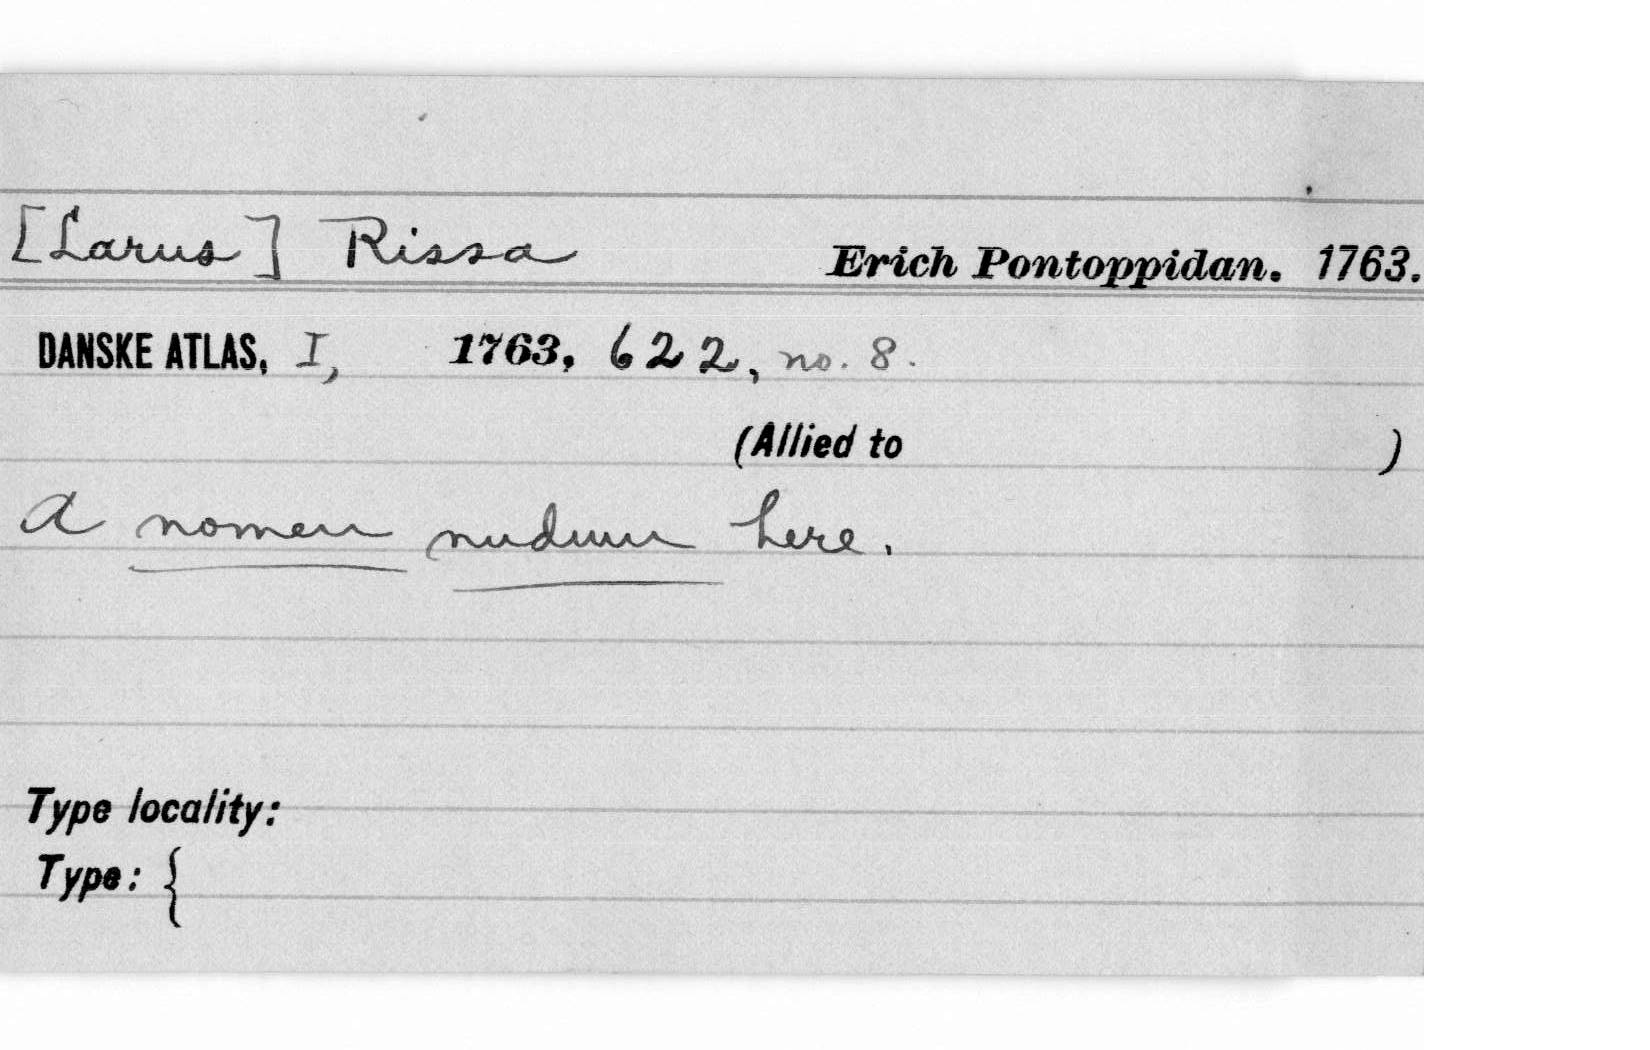 [Larus] Rissa Erich Pontoppidan. 1763.
DANSKE ATLAS, I, 1763, 622, no. 8.
(Allied to )
A nomen nudum here.
Type locality:
Type: {